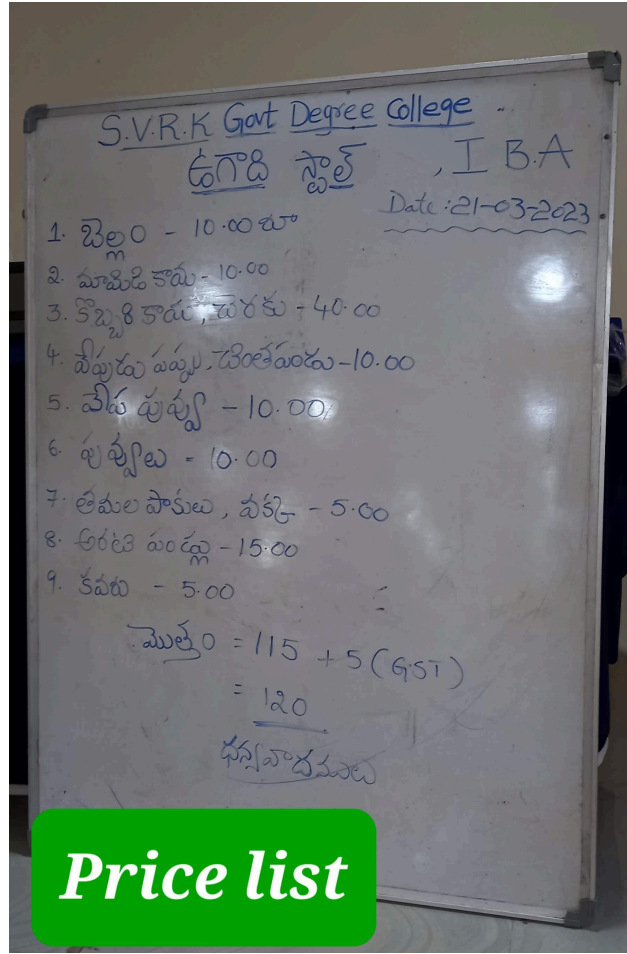 S.V.R.K Govt Degree College
ఉగాది స్టాల్ , I B.A
Date : 21-03-2023
1. బెల్లం - 10.00 రూ
2. మామిడి కాయ - 10.00
3. కొబ్బరి కాయ, చెరకు - 40.00
4. వేపుడు పప్పు, చింతపండు - 10.00
5. వేప పువ్వు - 10.00
6. పువ్వులు = 10.00
7. తమల పాకులు, వక్క - 5.00
8. అరటి పండ్లు - 15.00
9. కవరు - 5.00
మొత్తం = 115 + 5 (GST)
= 120
ధన్యవాదములు
Price list